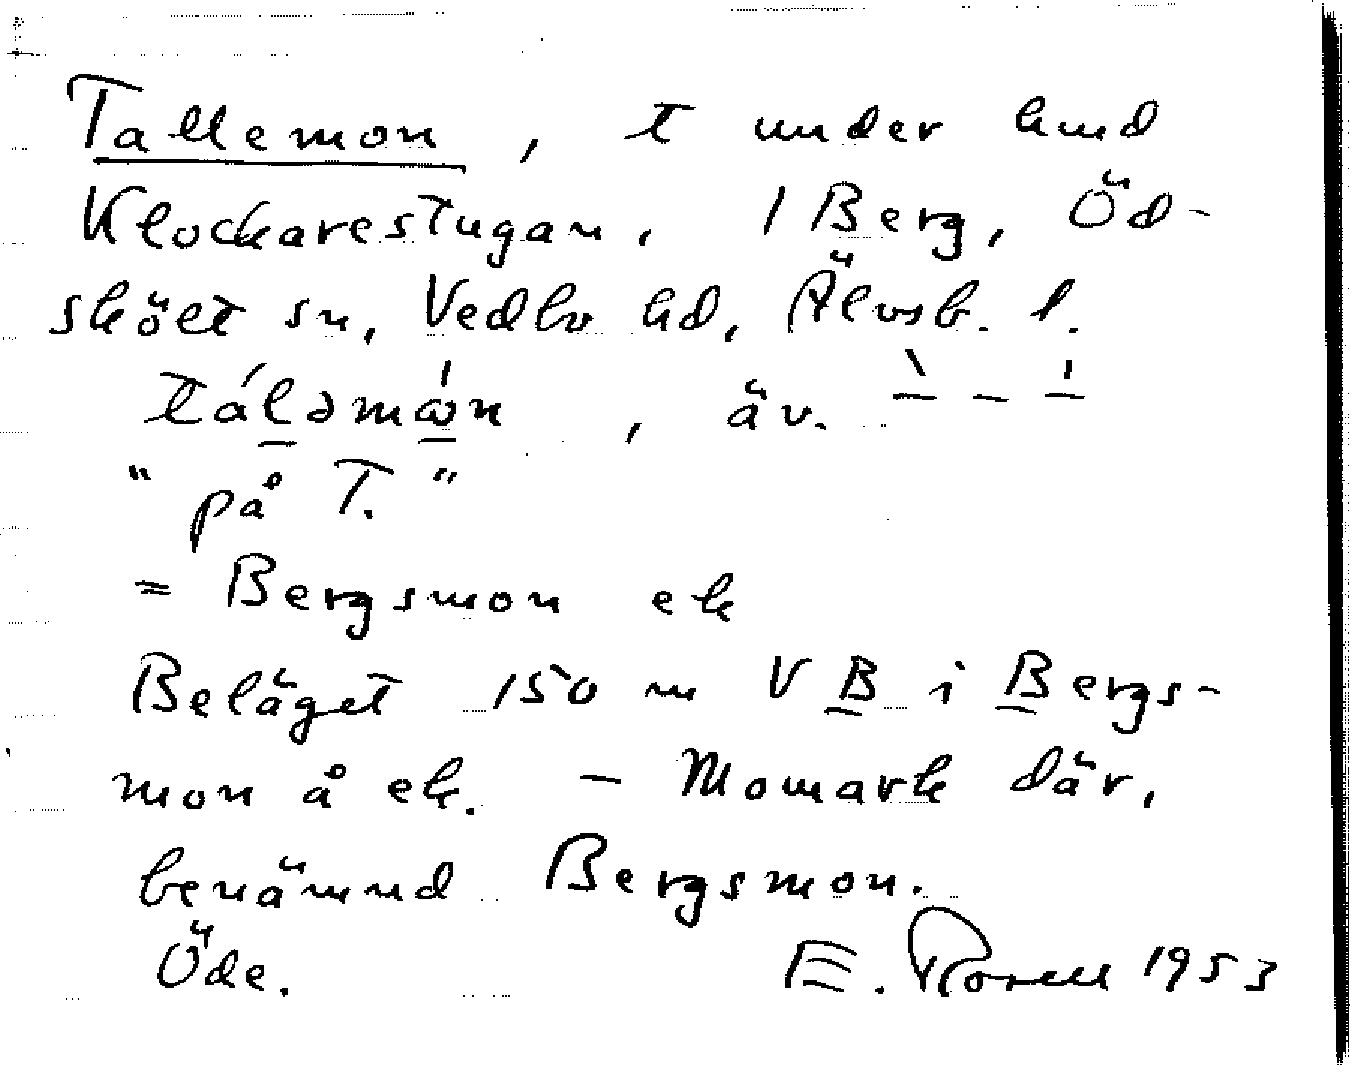 Tallemon, t under hmd
Klockarestugan, 1 Berg, Öd-
sköet sn, Vedbo hd, Älvsb. l.
tálǝmω̇n, äv. – – –
"på T."
= Bergsmon ek
Beläget 150 m V B i Bergs-
mon å ek. – Momark där,
benämnd Bergsmon.
Öde. E. Rosell 1953